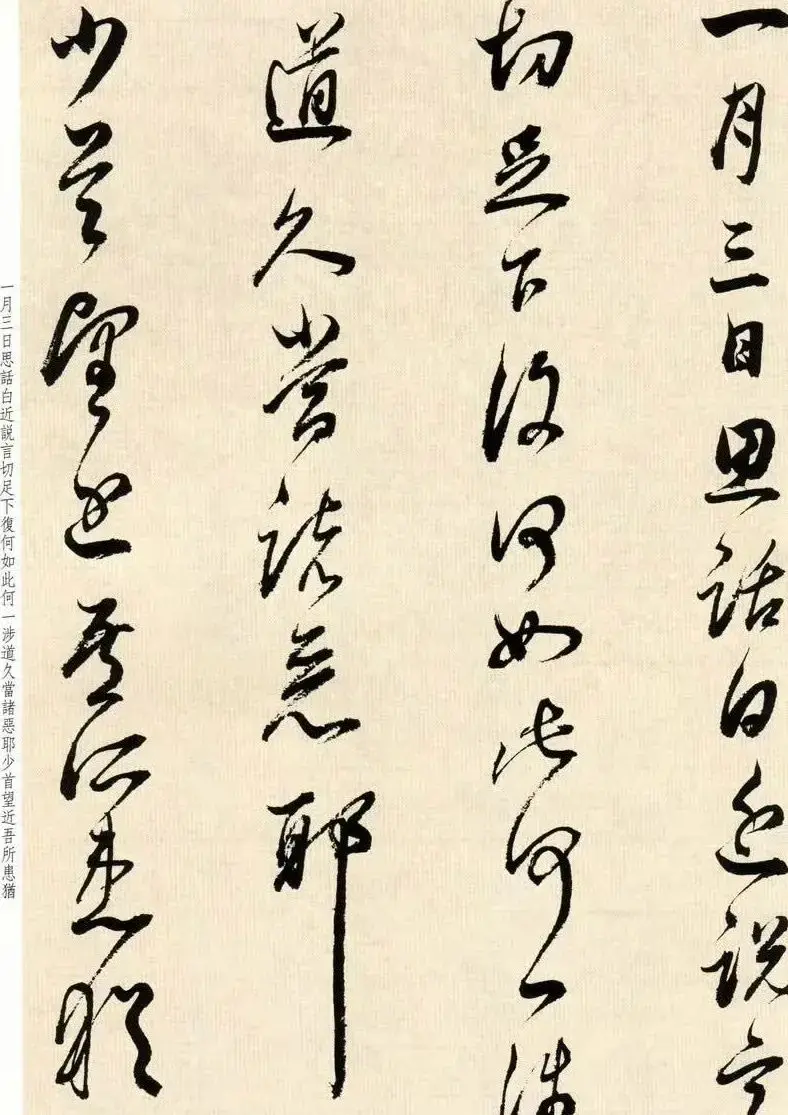 一月三日思話白近説言
切足下復何如此何一涉
道久當諸惡耶
少首望近吾所患猶
一月三日思話白近説言切足下復何如此何一涉道久當諸惡耶少首望近吾所患猶